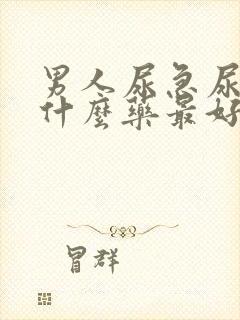 男人尿急尿
什麼藥最好
冒群